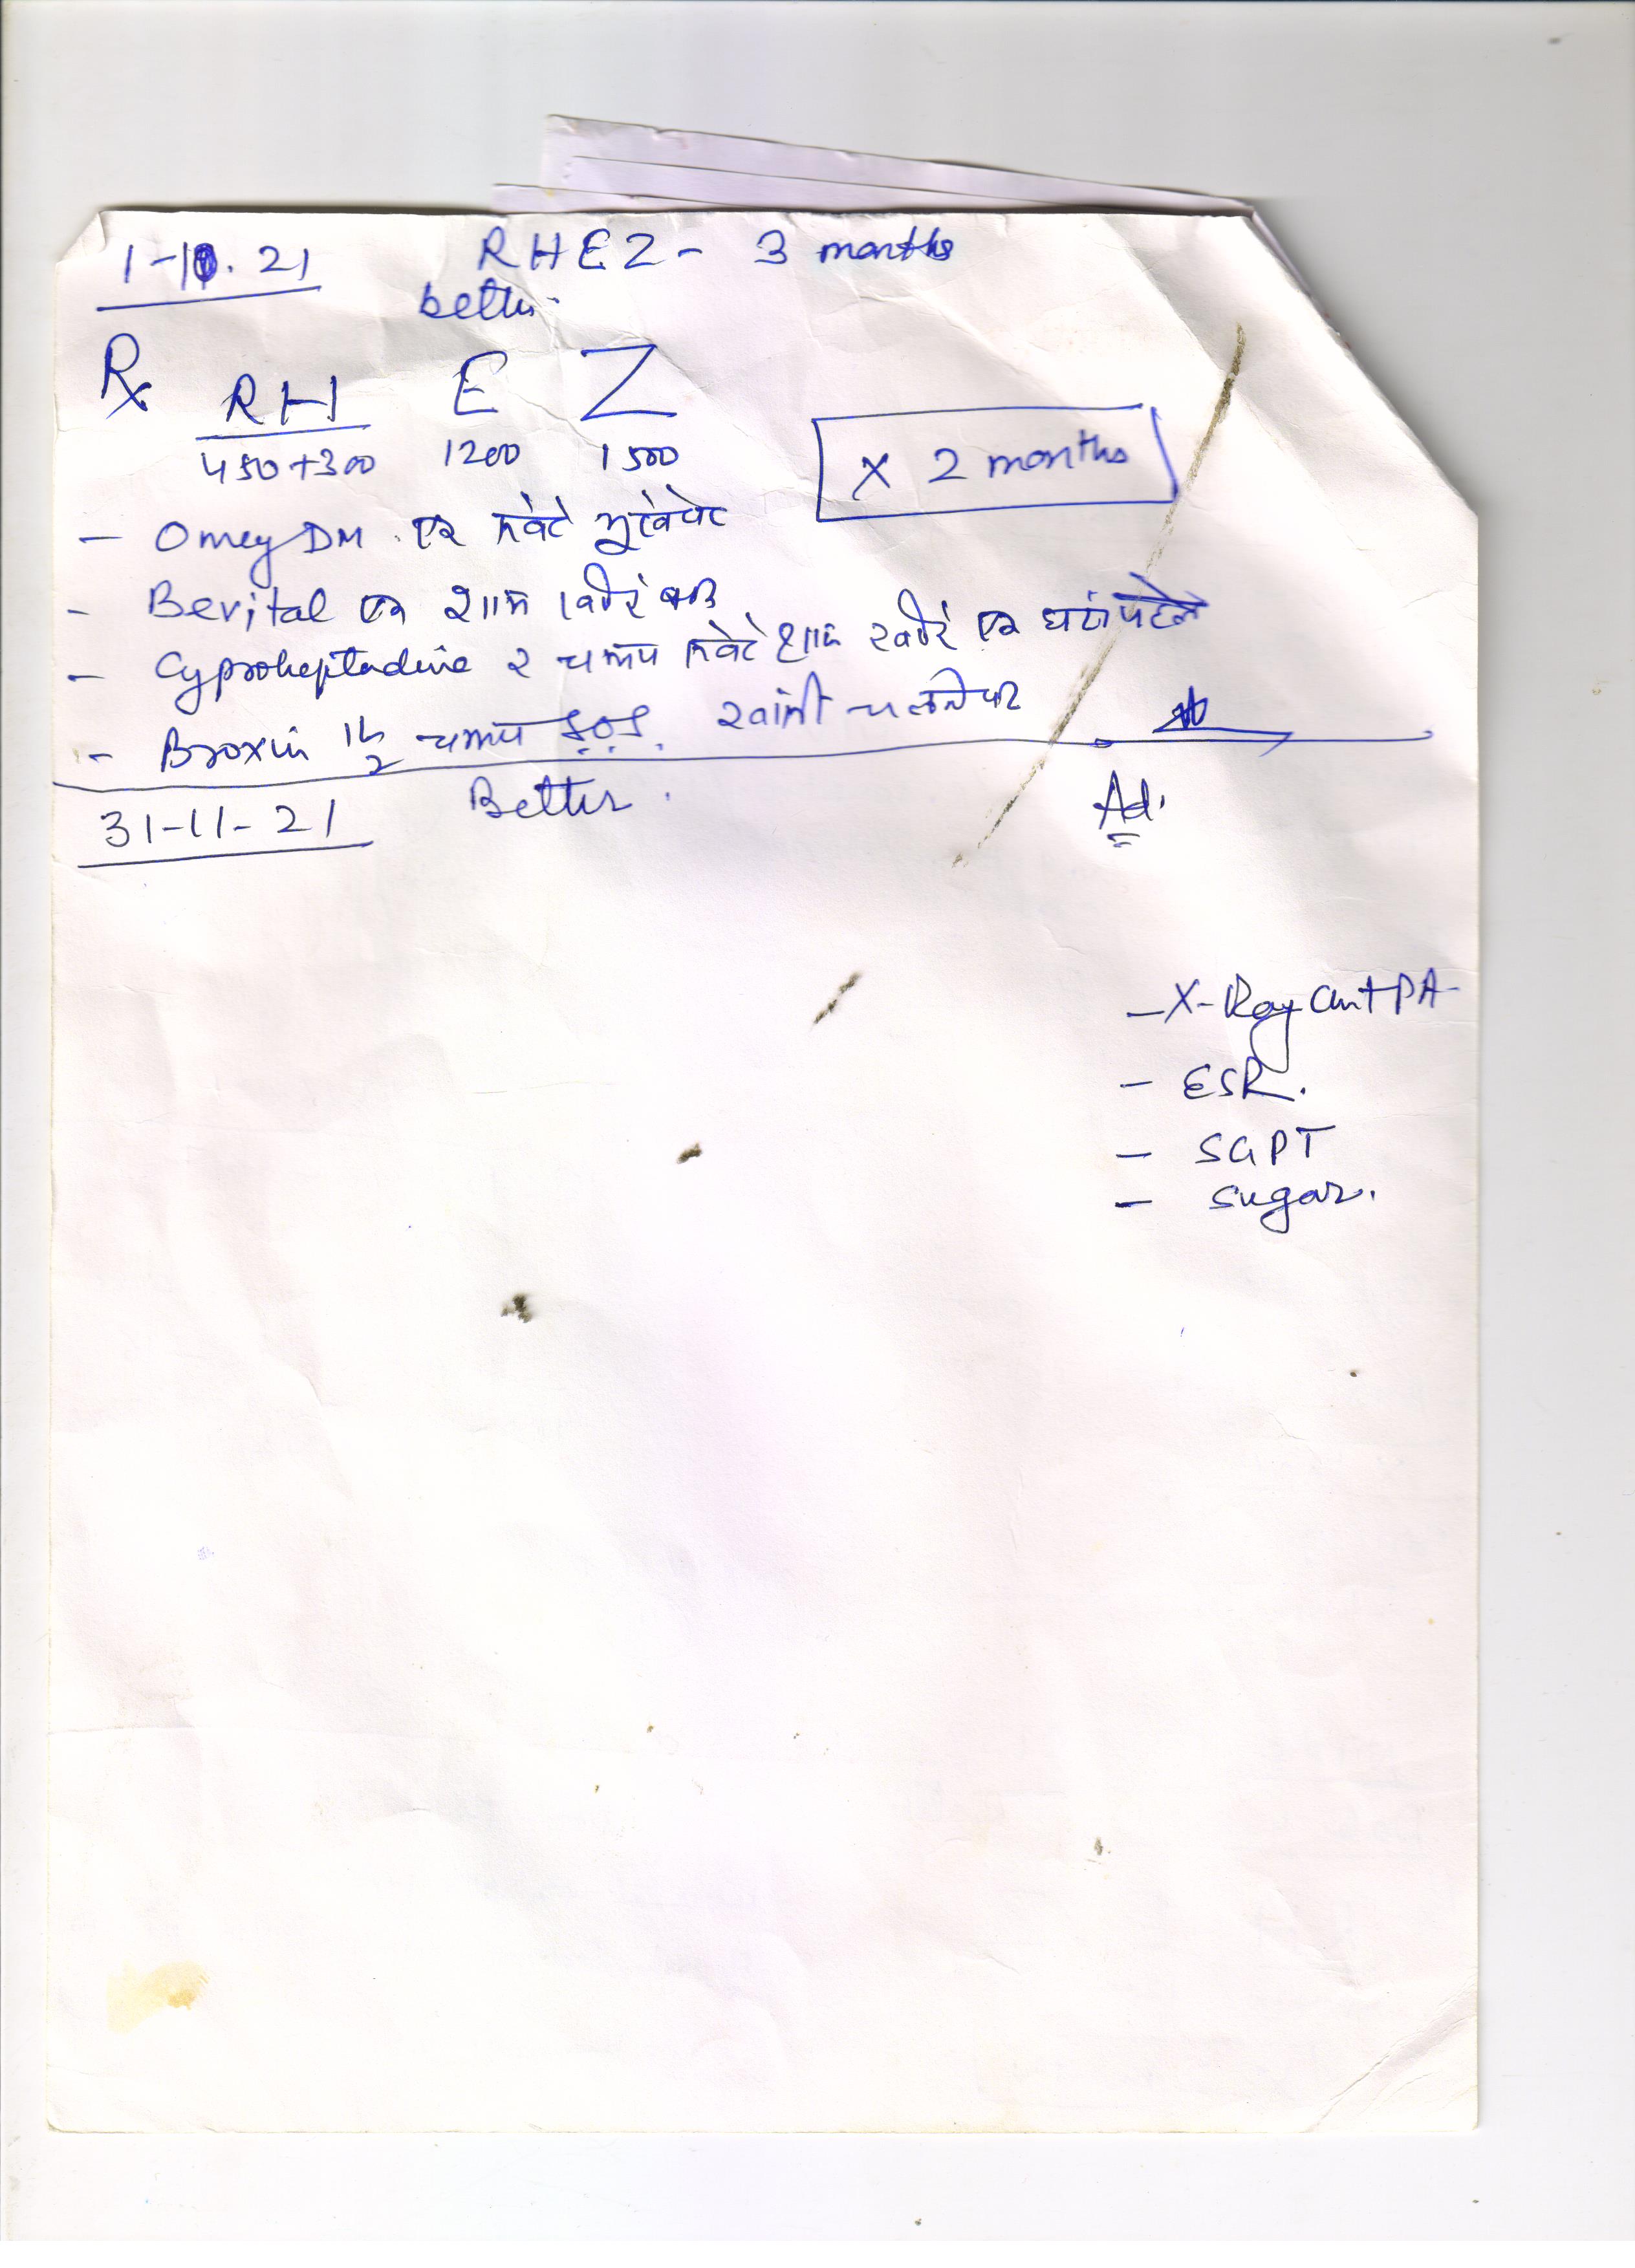 1-10.21 RHEZ - 3 months
better.
Rx RH E Z
450+300 1200 1500
x 2 months
- Omey DM एक सवेरे भूखे पेट
- Bevital एक शाम खाने के बाद
- Cyproheptadine २ चम्मच सवेरे शाम खाने से एक घंटा पहले
- Broxin 1½ चम्मच SOS. खांसी चलने पर
31-11-21 Better.
Ad.
- X-Ray Chest PA
- ESR.
- SGPT
- Sugar.